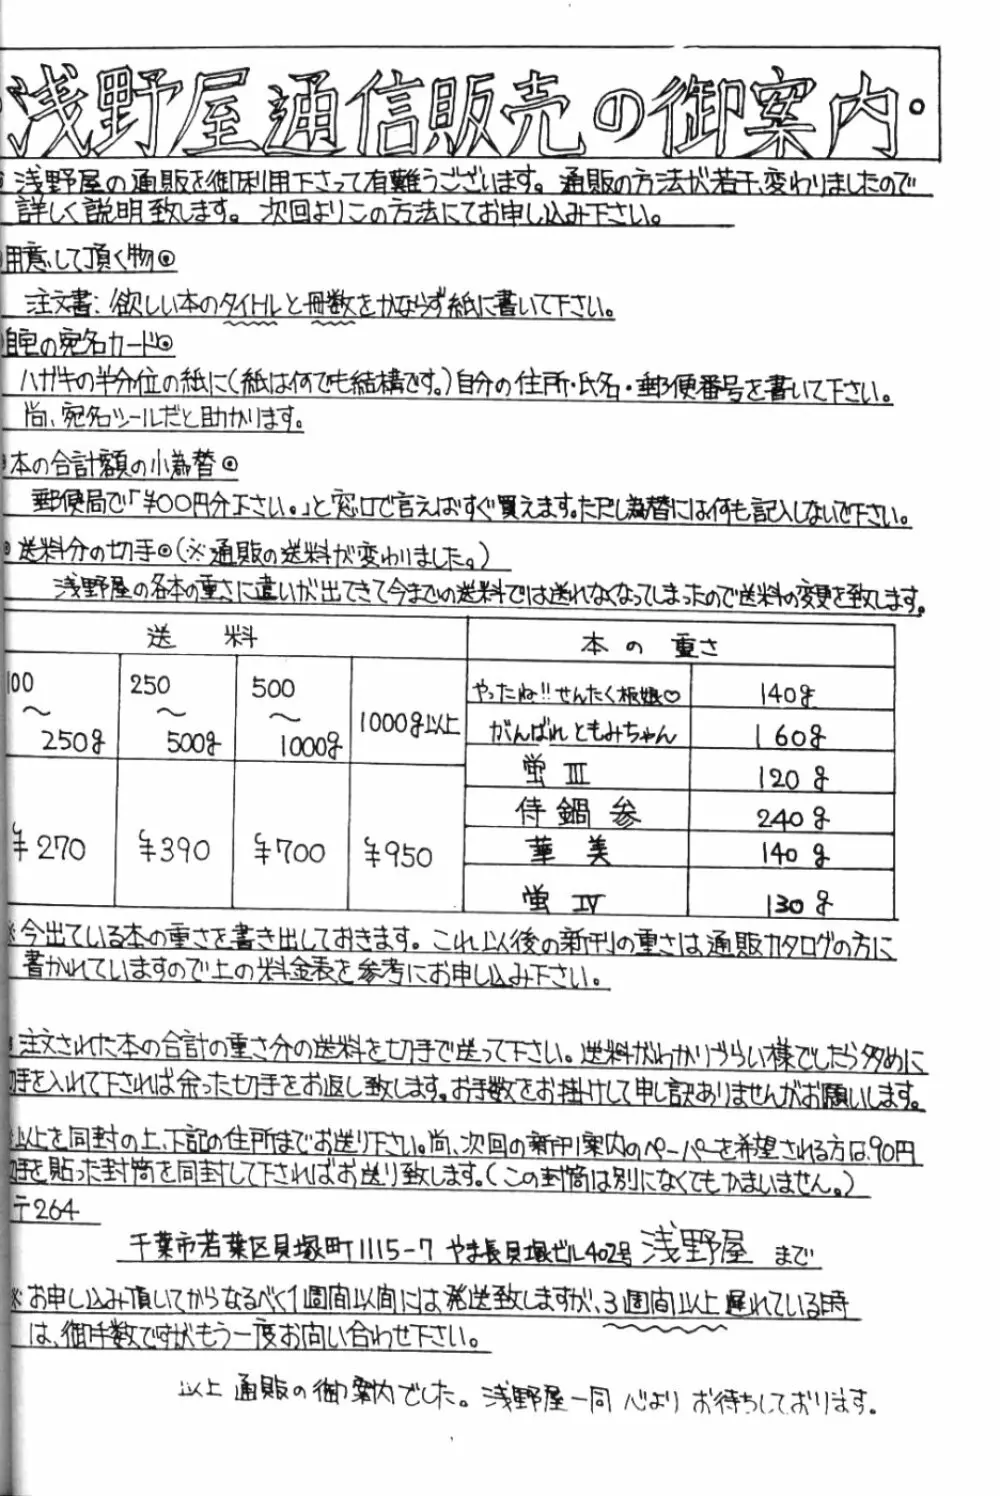 浅野屋通信販売の御案内・
浅野屋の通販を御利用下さって有難うございます。通販の方法が若干、変わりましたので
詳しく説明致します。次回よりこの方法にてお申し込み下さい。
用意して頂く物◎
注文書:欲しい本のタイトルと冊数をかならず紙に書いて下さい。
自宅の宛名カード◎
ハガキの半分位の紙に(紙は何でも結構です。)自分の住所・氏名・郵便番号を書いて下さい。
尚、宛名シールだと助かります。
本の合計額の小為替◎
郵便局で「¥〇〇円分下さい。」と窓口で言えばすぐ買えます。ただし為替には何も記入しないで下さい。
◎送料分の切手◎(※通販の送料が変わりました。)
浅野屋の各本の重さに違いが出てきて今までの送料では送れなくなってしまったので送料の変更を致します。
送料 本の重さ
100〜250g 250〜500g 500〜1000g 1000g以上
¥270 ¥390 ¥700 ¥950
やったね!!せんたく板娘♡ 140g
がんばれ ともみちゃん 160g
蛍 III 120g
侍鍋 参 240g
華美 140g
蛍 IV 130g
※今出ている本の重さを書き出しておきます。これ以後の新刊の重さは通販カタログの方に
書かれていますので上の料金表を参考にお申し込み下さい。
注文された本の合計の重さ分の送料を切手で送って下さい。送料がわかりづらい様でしたら多めに
切手を入れて下されば余った切手をお返し致します。お手数をお掛けして申し訳ありませんがお願いします。
以上を同封の上、下記の住所までお送り下さい。尚、次回の新刊案内のペーパーを希望される方は90円
切手を貼った封筒を同封して下さればお送り致します。(この封筒は別になくてもかまいません。)
〒264
千葉市若葉区貝塚町1115-7 やま長貝塚ビル402号 浅野屋 まで
※お申し込み頂いてからなるべく1週間以内には発送致しますが、3週間以上遅れている時
は、御手数ですがもう一度お問い合わせ下さい。
以上 通販の御案内でした。浅野屋一同 心より お待ちしております。